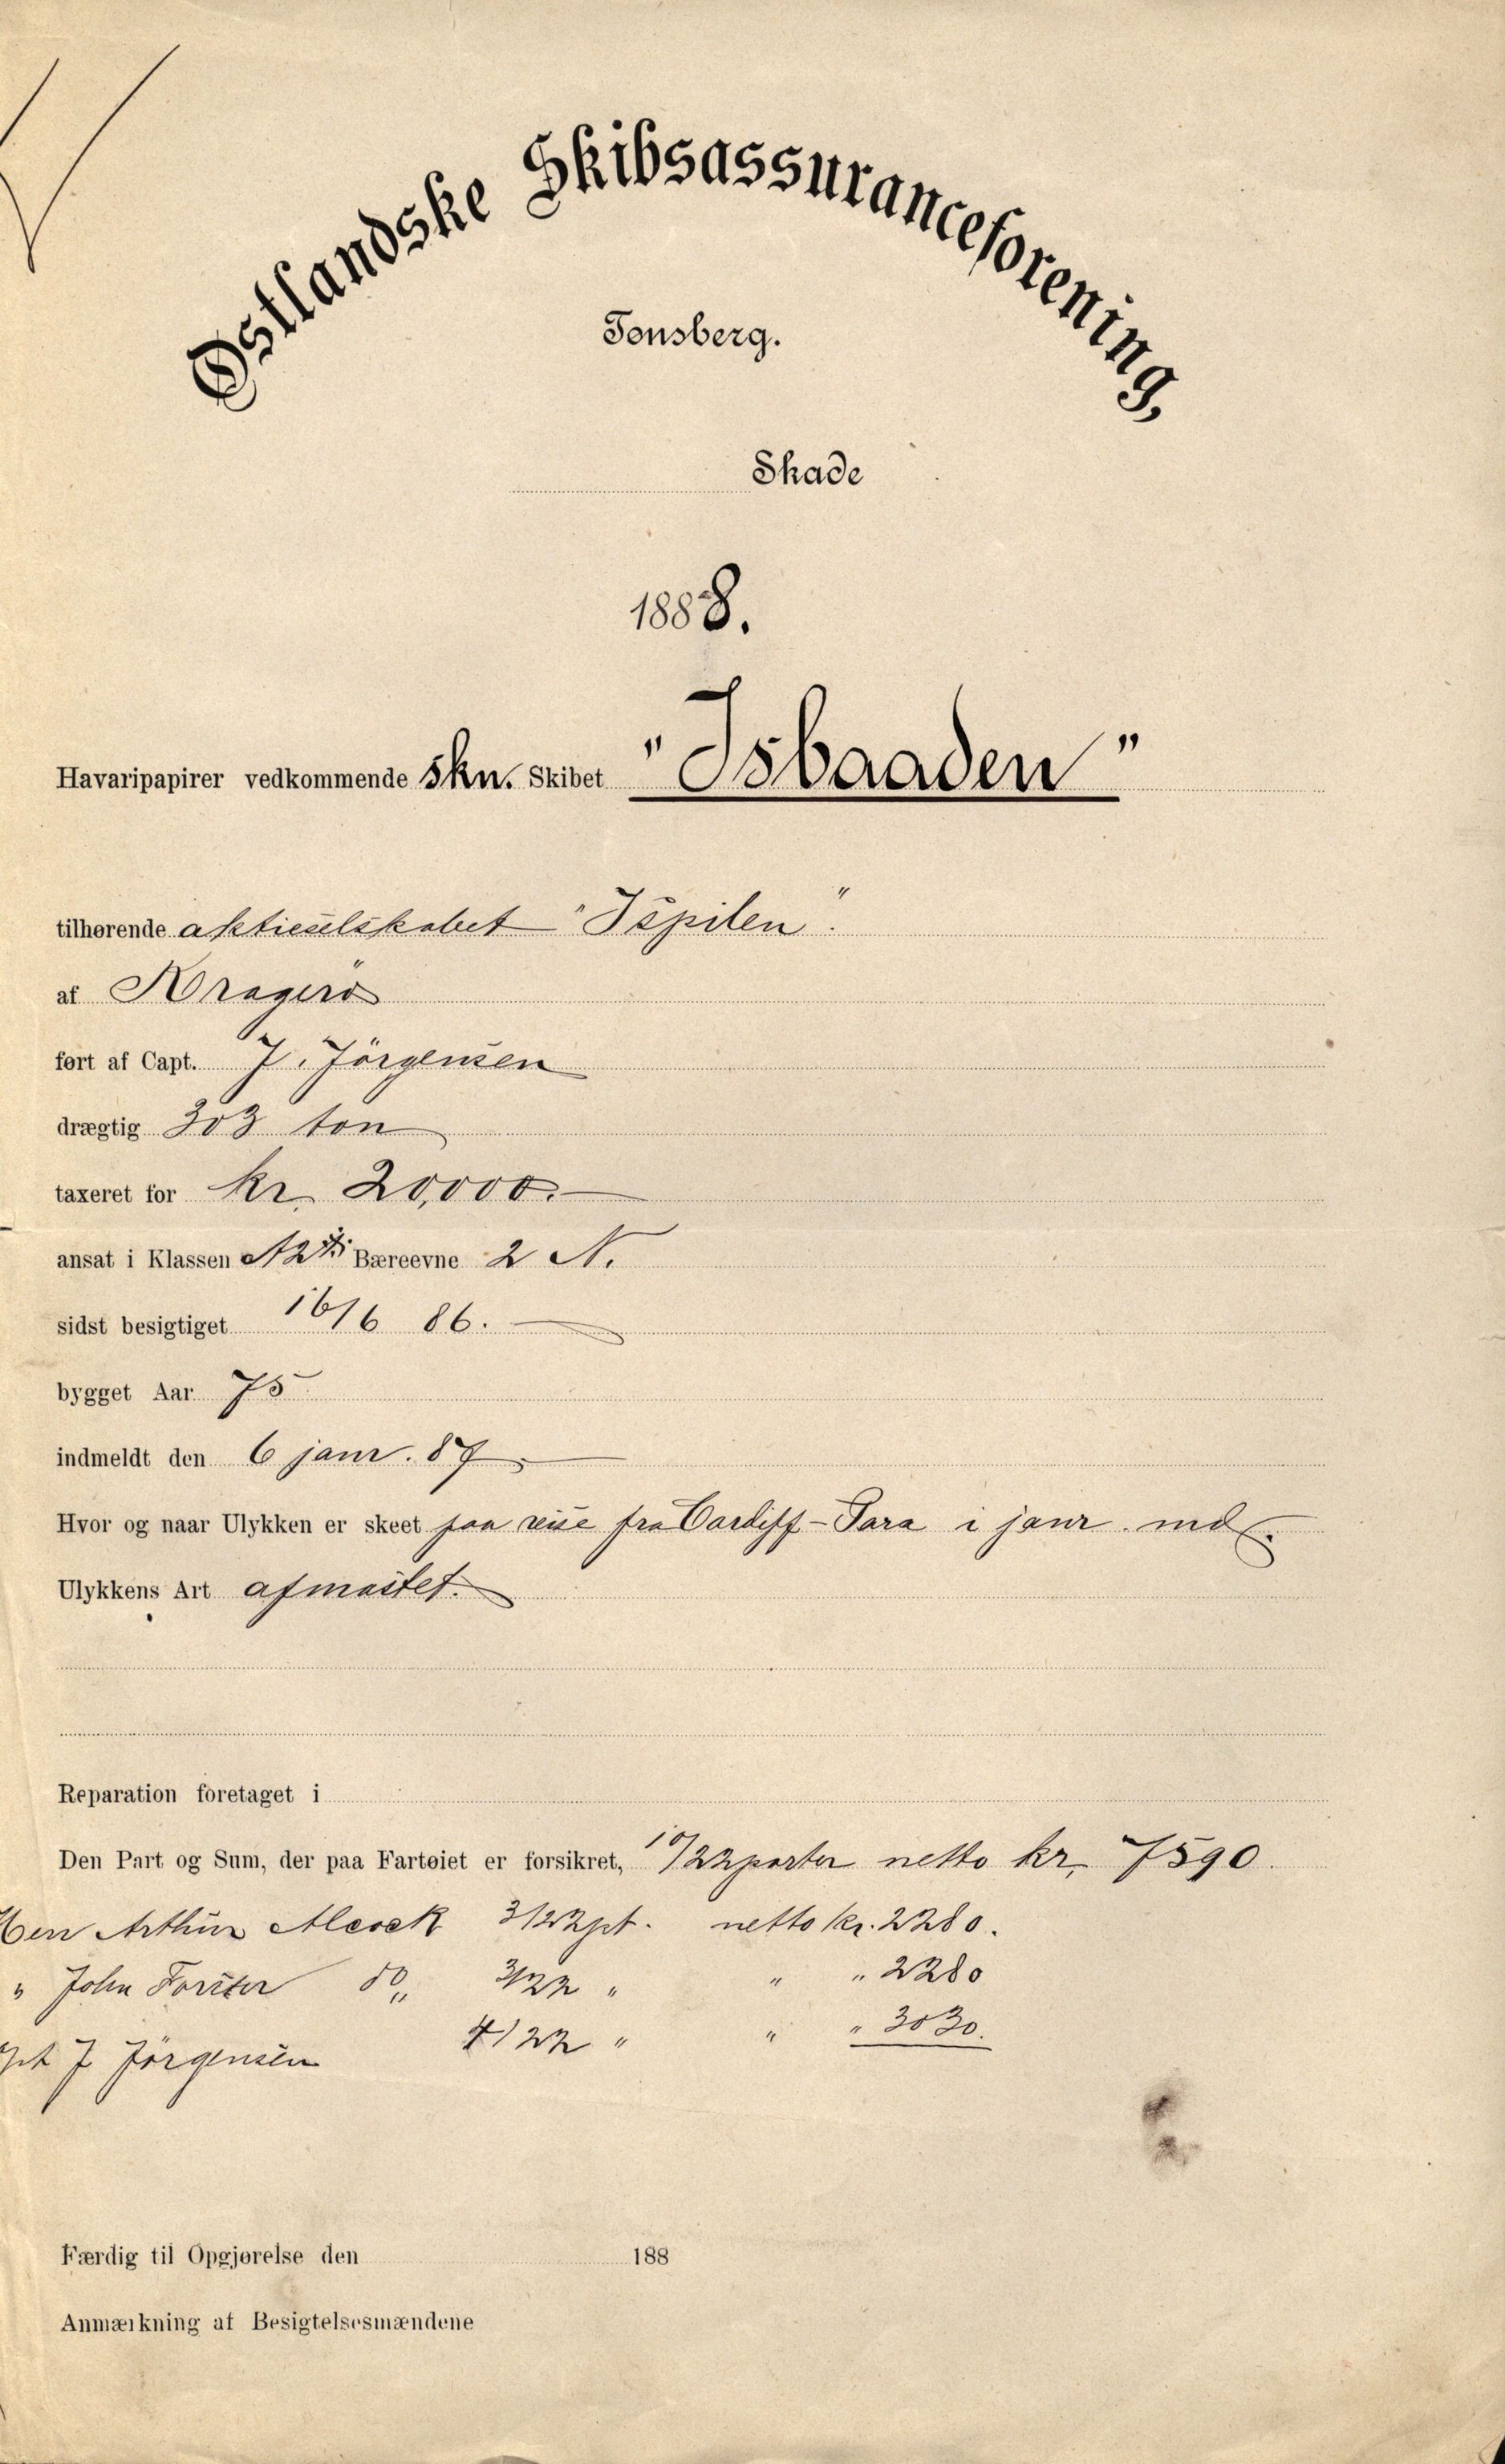 Østlandske Skibsassuranceforening,
Tønsberg.
Skade
1888.
Havaripapirer vedkommende Skn. Skibet "Isbaaden"
tilhørende aktieselskabet "Ispilen".
af Kragerö
ført af Capt. J. Jörgensen
drægtig 303 ton
taxeret for kr. 20,000.—
ansat i Klassen A2 Bæreevne 2 N.
sidst besigtiget 16/6 86.
bygget Aar 75
indmeldt den 6 janr. 87
Hvor og naar Ulykken er skeet paa reise fra Cardiff - Para i janr. md.
Ulykkens Art afmastet.
Reparation foretaget i
Den Part og Sum, der paa Fartøiet er forsikret, 10/22parter netto kr. 7590.
Herr Arthur Alcock 3/22pt. netto kr. 2280.
" John Forster do " 3/22 " " " 2280
J Jörgensen 4/22 " " " 3030.
Færdig til Opgjørelse den 188
Anmærkning af Besigtelsesmændene